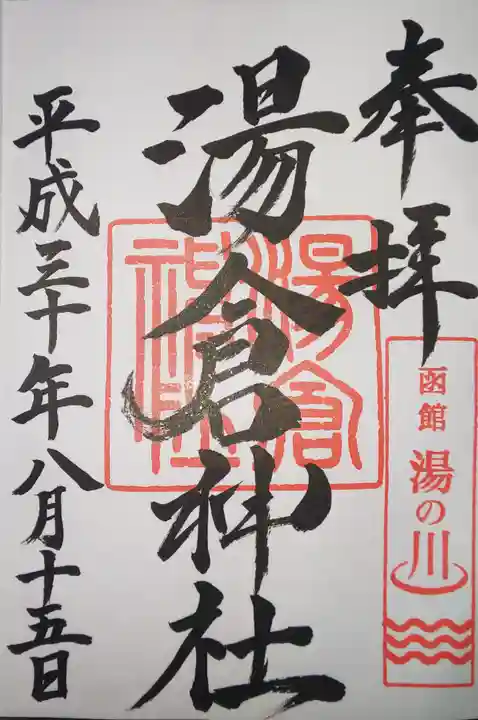 奉拝
函館
湯の川
湯倉神社
湯倉
神社
平成三十年八月十五日